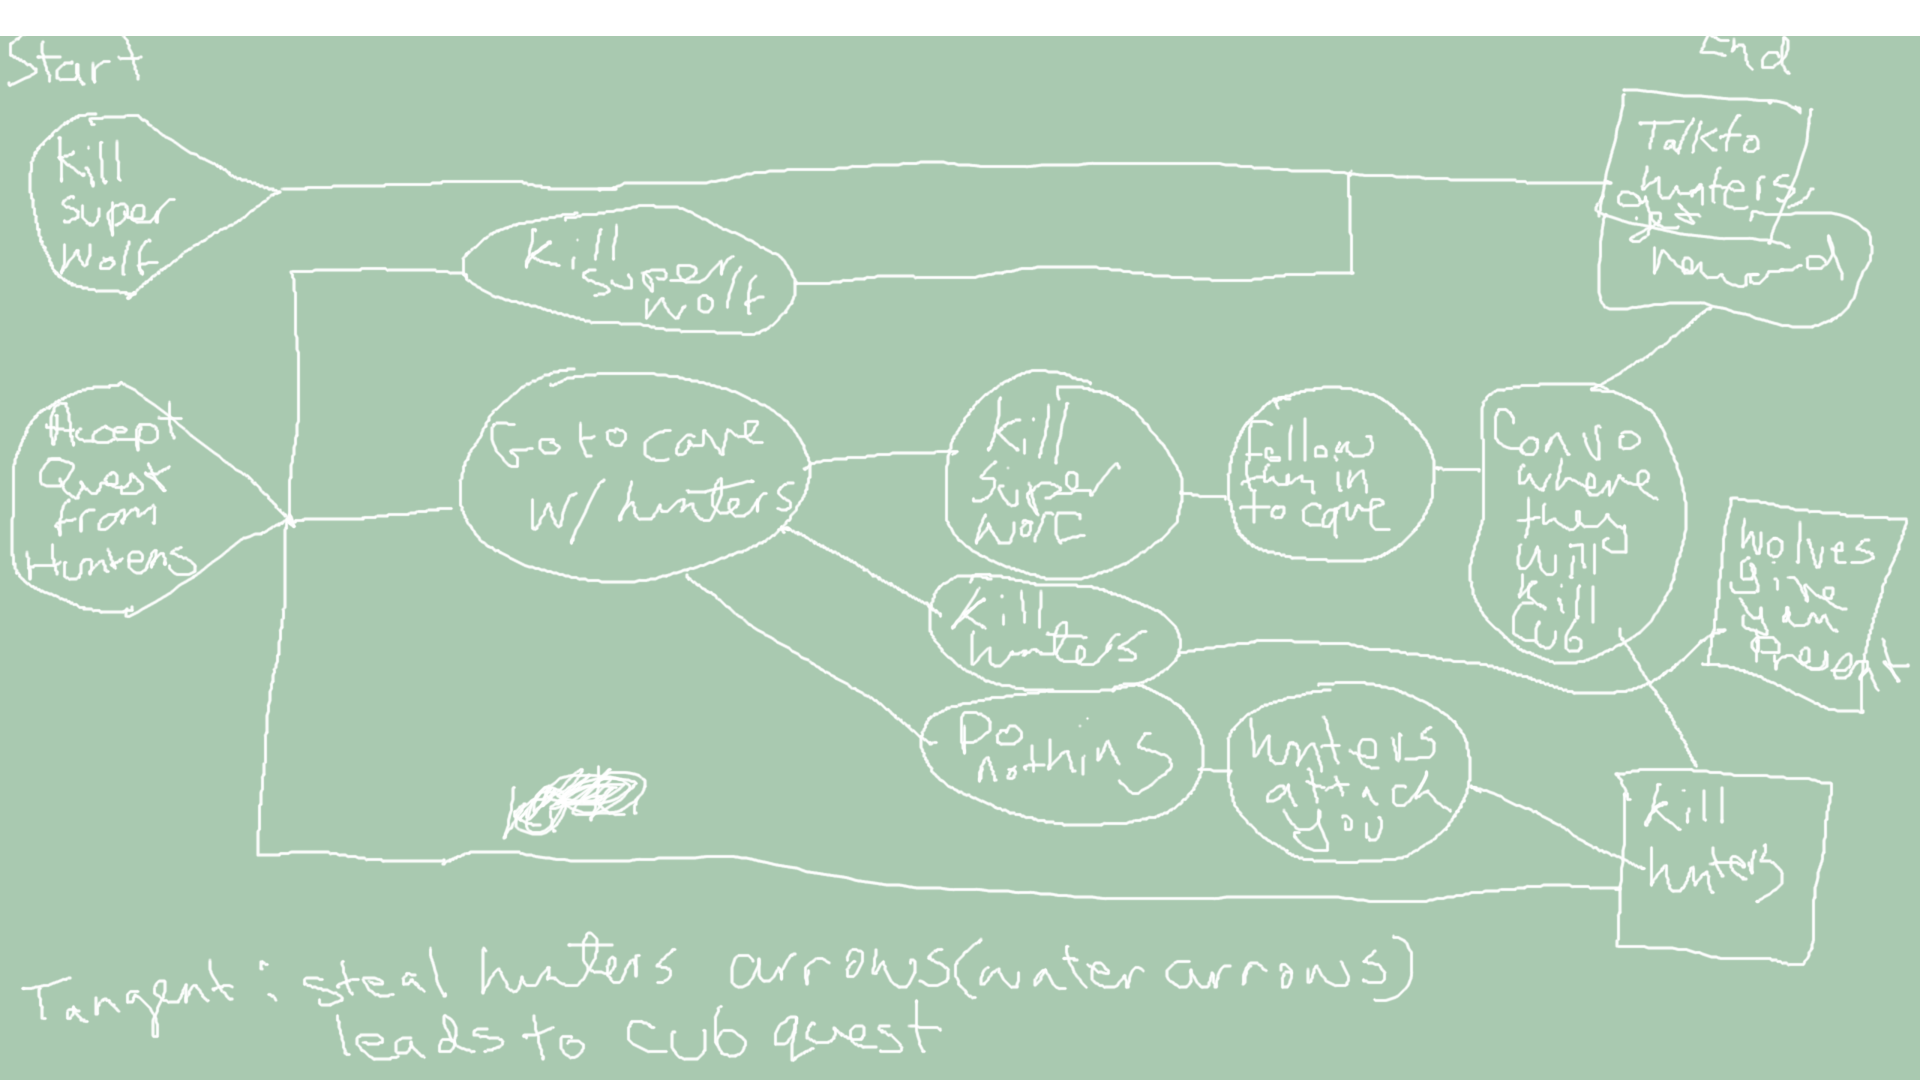 Start
End
Kill
super
Wolf
Talk to
hunters,
get
reward
Kill
super
wolf
Accept
Quest
from
Hunters
Go to cave
w/ hunters
Kill
super
wolf
Follow
them in
to cave
Convo
where
they
will
kill
Cub
Wolves
give
you
Present
Kill
hunters
Do
nothing
hunters
attack
you
Kill
hunters
Tangent: steal hunters arrows(water arrows)
leads to cub quest